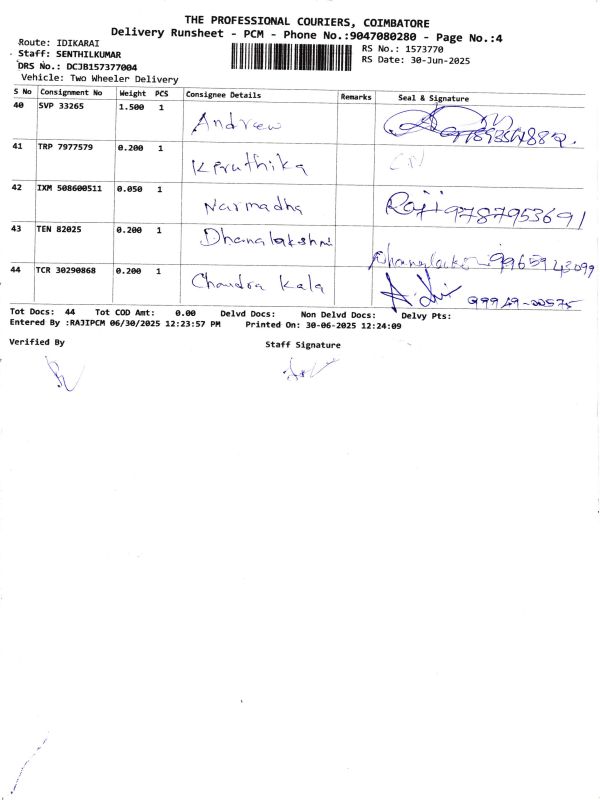 THE PROFESSIONAL COURIERS, COIMBATORE
Delivery Runsheet - PCM - Phone No.:9047080280 - Page No.:4
Route: IDIKARAI
Staff: SENTHILKUMAR
DRS No.: DCJB157377004
Vehicle: Two Wheeler Delivery
RS No.: 1573770
RS Date: 30-Jun-2025
S No Consignment No Weight PCS Consignee Details Remarks Seal & Signature
40 SVP 33265 1.500 1 Andrew
41 TRP 7977579 0.200 1 Keruthika
42 IXM 508600511 0.050 1 Narmadha Raji 9787953691
43 TEN 82025 0.200 1 Dhanalakshmi 9965943099
44 TCR 30290868 0.200 1 Chandra Kala
Tot Docs: 44 Tot COD Amt: 0.00 Delvd Docs: Non Delvd Docs: Delvy Pts:
Entered By :RAJIPCM 06/30/2025 12:23:57 PM Printed On: 30-06-2025 12:24:09
Verified By Staff Signature